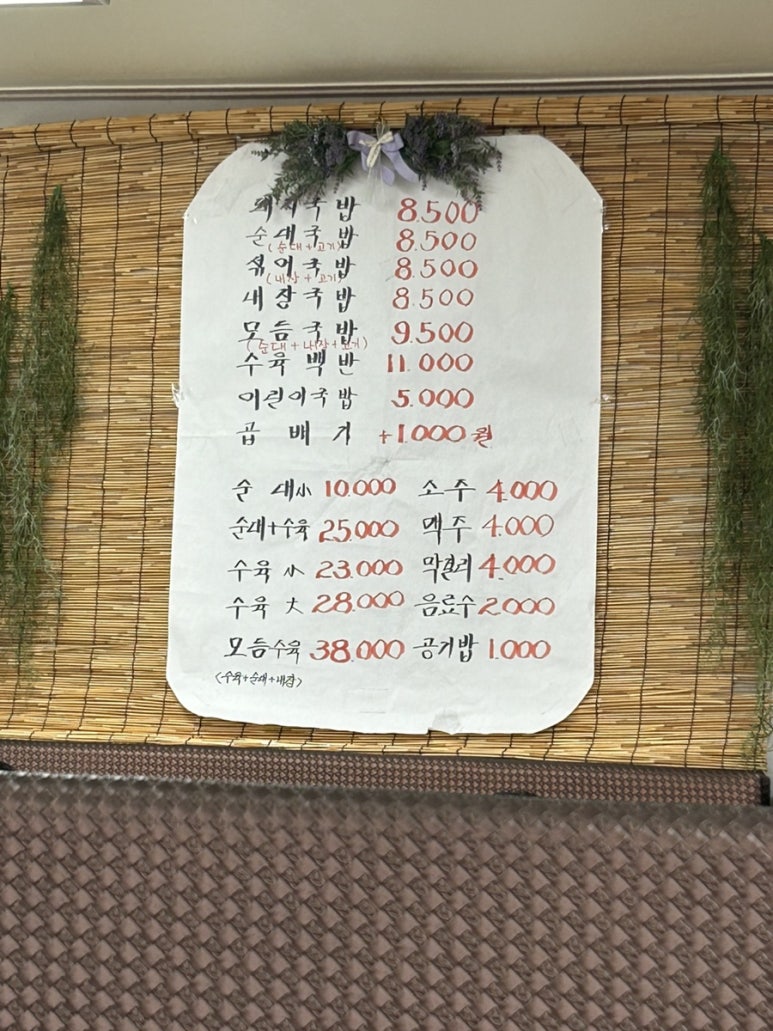 돼지국밥 8.500
순대국밥 8.500
(순대+고기)
섞어국밥 8.500
(내장+고기)
내장국밥 8.500
모듬국밥 9.500
(순대+내장+고기)
수육백반 11.000
어린이국밥 5.000
곱배기 +1.000원
순대小 10.000 소주 4.000
순대+수육 25.000 맥주 4.000
수육 小 23.000 막걸리 4.000
수육 大 28.000 음료수 2.000
모듬수육 38.000 공기밥 1.000
<수육+순대+내장>